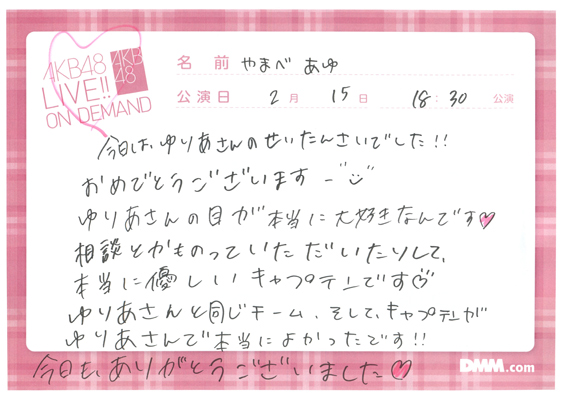 AKB48
LIVE!!
ON DEMAND
AKB
48
名 前 やまべ あゆ
公演日 2月 15日 18:30 公演
今日は、ゆりあさんのせいたんさいでした!!
おめでとうございます
ゆりあさんの目が本当に大好きなんです♥
相談とかものっていただいたりして、
本当に優しいキャプテンです
ゆりあさんと同じチーム、そして、キャプテンが
ゆりあさんで本当によかったです!!
今日も、ありがとうございました♡
DMM.com